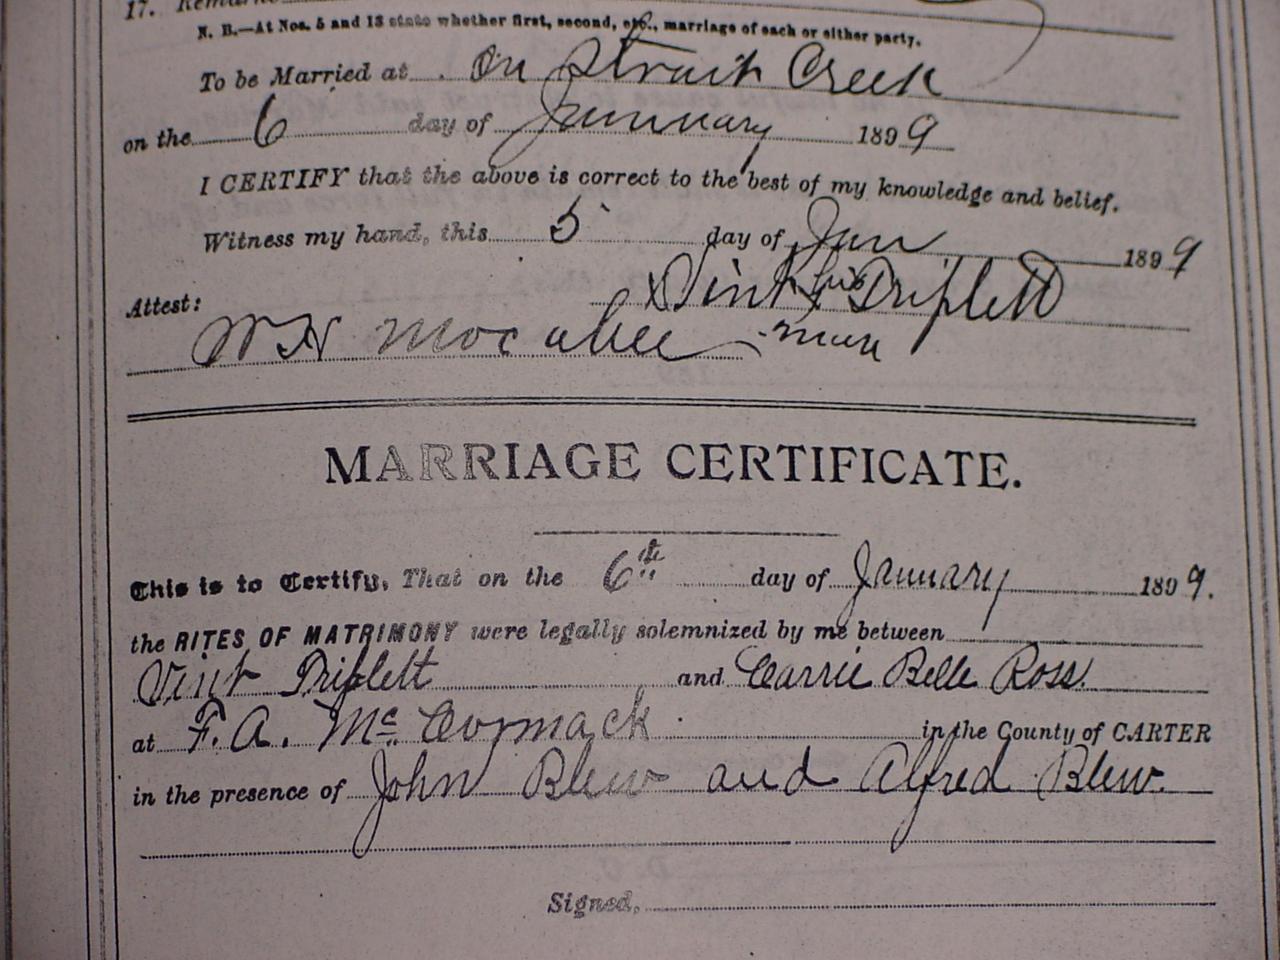 17. Remarks
N. B.—At Nos. 5 and 13 state whether first, second, etc., marriage of each or either party.
To be Married at On Strait Creek
on the 6 day of January 1899
I CERTIFY that the above is correct to the best of my knowledge and belief.
Witness my hand, this 5 day of Jan 1899
Vint X his Triplett
Attest: mark
W H Mocabee
MARRIAGE CERTIFICATE.
This is to Certify, That on the 6th day of January 1899.
the RITES OF MATRIMONY were legally solemnized by me between
Vint Triplett and Carrie Belle Ross
at F. A. McCormack in the County of CARTER
in the presence of John Blew and Alfred Blew.
Signed,